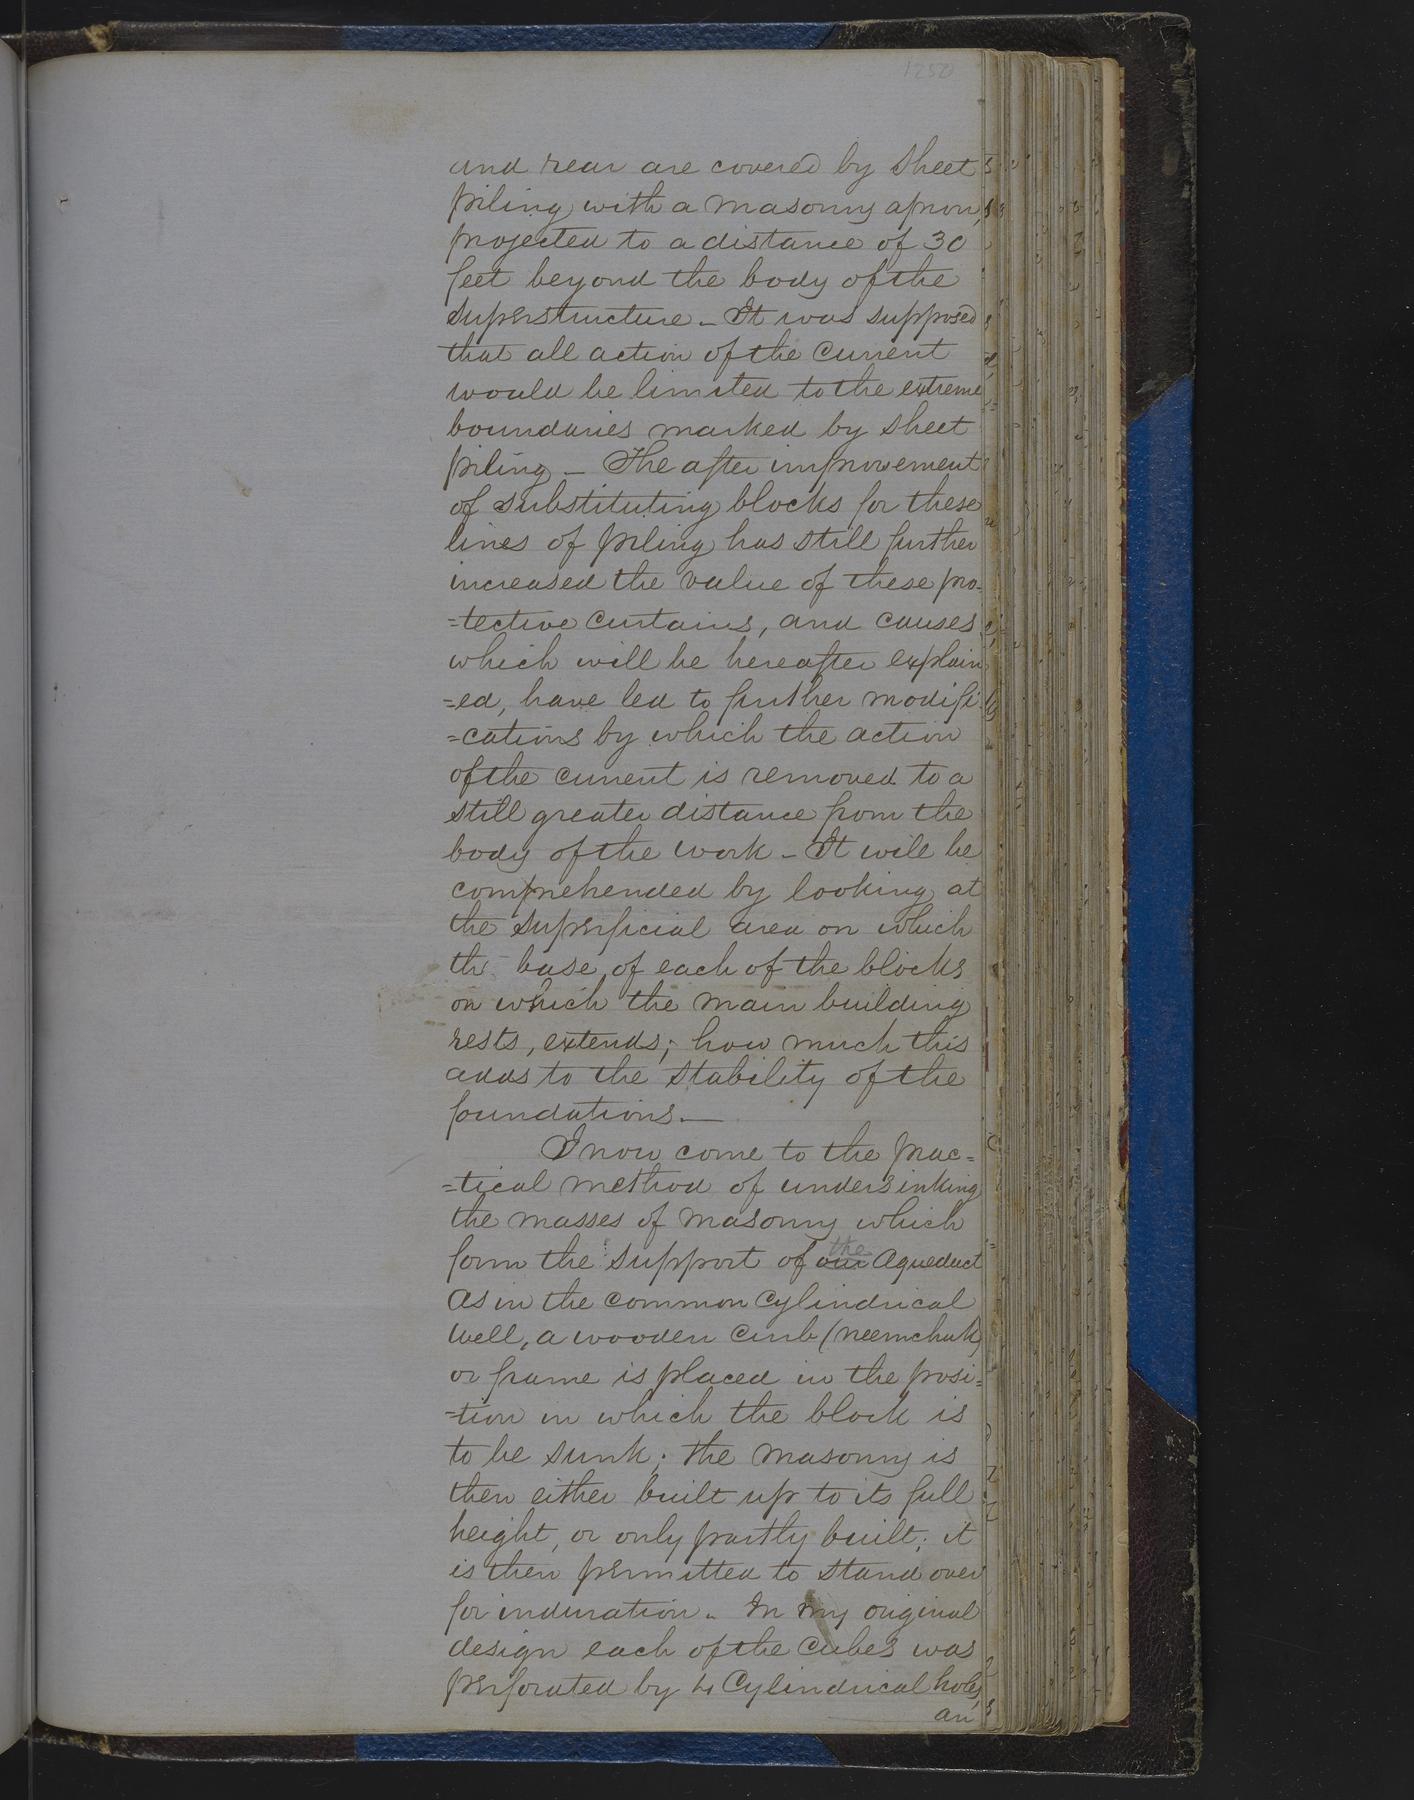 1250
and rear are covered by sheet
piling with a masonry apron,
projected to a distance of 30
feet beyond the body of the
superstructure – It was supposed
that all action of the current
would be limited to the extreme
boundaries marked by sheet
piling – The after improvement
of substituting blocks for these
lines of piling has still further
increased the value of these pro-
=tective curtains, and causes
which will be hereafter explain
=ed, have led to further modifi
=cations by which the action
of the current is removed to a
still greater distance from the
body of the work – It will be
comprehended by looking at
the superficial area on which
the base of each of the blocks
on which the main building
rests, extends; how much this
adds to the stability of the
foundations. —
I now come to the prac=
=tical method of undersinking
the masses of masonry which
the
form the support of our Aqueduct
As in the common cylindrical
well, a wooden curb (neemchuk)
or frame is placed in the posi=
=tion in which the block is
to be sunk; the masonry is
then either built up to its full
height, or only partly built; it
is then permitted to stand over
for induration. In my original
design each of the cubes was
perforated by 4 Cylindrical holes,
an